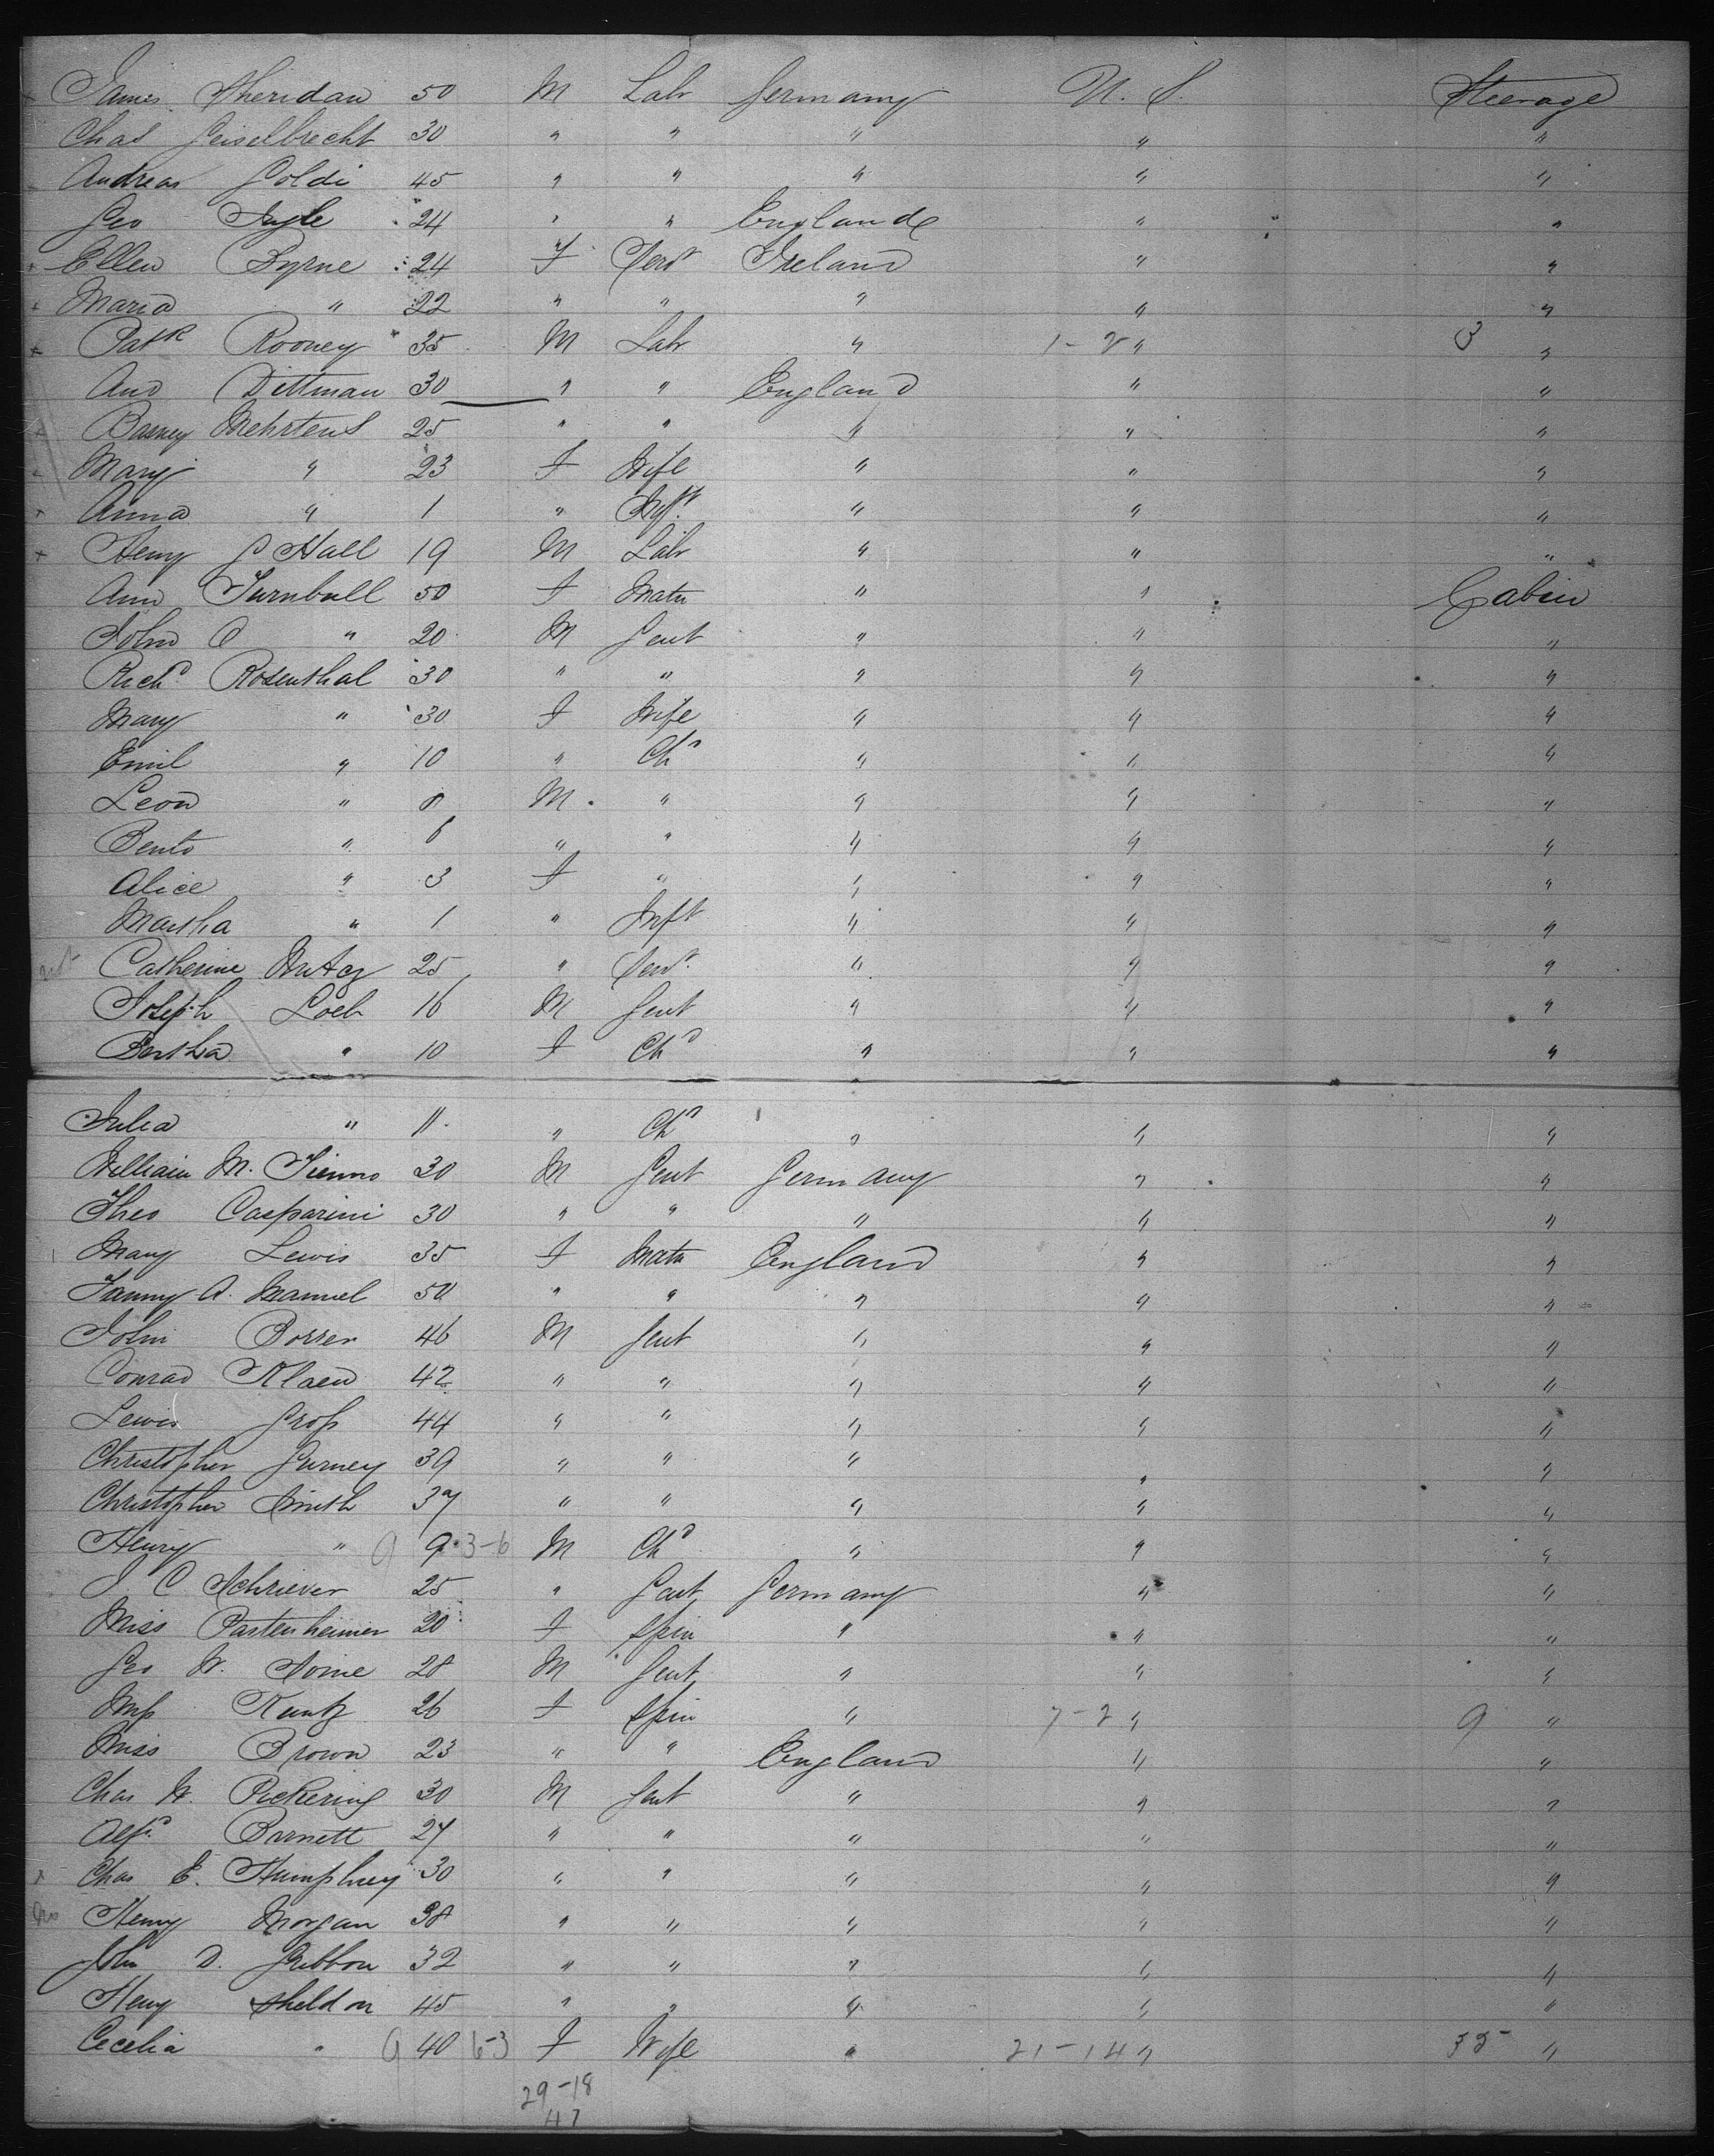 James Sheridan 50 M Labr Germany U. S. Steerage
Chas Geiselbrecht 30 " " " " "
Andreas Goldi 45 " " " " "
Geo Ingle 24 " " England " "
Ellen Byrne 24 F Servt Ireland " "
Maria " 22 " " " " "
Patk Rooney 35 M Labr " 1-2 " 3 "
And Dittman 30 " " England " "
Barney Mehrtens 25 " " " " "
Mary " 23 F Wife " " "
Anna " 1 " Inft " " "
Henry G Hall 19 M Labr " " "
Ann Turnbull 50 F Matn " " Cabin
John C " 20 M Gent " " "
Richd Rosenthal 30 " " " " "
Mary " 30 F Wife " " "
Emil " 10 " Chd " " "
Leon " 8 M " " " "
Bento " 6 " " " " "
Alice " 3 F " " " "
Martha " 1 " Inft " " "
Catherine 25 " Servt " " "
Joseph Loeb 16 M Gent " " "
Bertha " 10 F Chd " " "
Julia " 11 " Chd " " "
William M. 30 M Gent Germany " "
Theo Casparini 30 " " " " "
Mary Lewis 35 F Matn England " "
Fanny A. Manuel 50 " " " " "
John Borrer 46 M Gent " " "
Conrad Klaen 42 " " " " "
Lewis Groſs 44 " " " " "
Christopher Gurney 39 " " " " "
Christopher Smith 37 " " " " "
Henry " 9 9 3-6 M Chd " " "
J. C. Schriever 25 " Gent Germany " "
Miss Pastenheimer 20 F Spin " " "
Geo W. 28 M Gent " " "
Miſs Kuntz 26 F Spin " 7-2 " 9 "
Miss Brown 23 " " England " "
Chas W. Pickering 30 M Gent " " "
Alfd Burnett 27 " " " " "
Chas E. Humphrey 30 " " " " "
Henry Morgan 38 " " " " "
John D. Gribbon 32 " " " " "
Henry Sheldon 45 " " " " "
Cecelia " 9 40 6-3 F Wife " 21-14 " 35 "
29-18
47